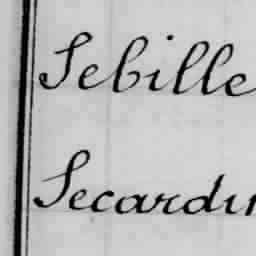 Sebille
Secardin